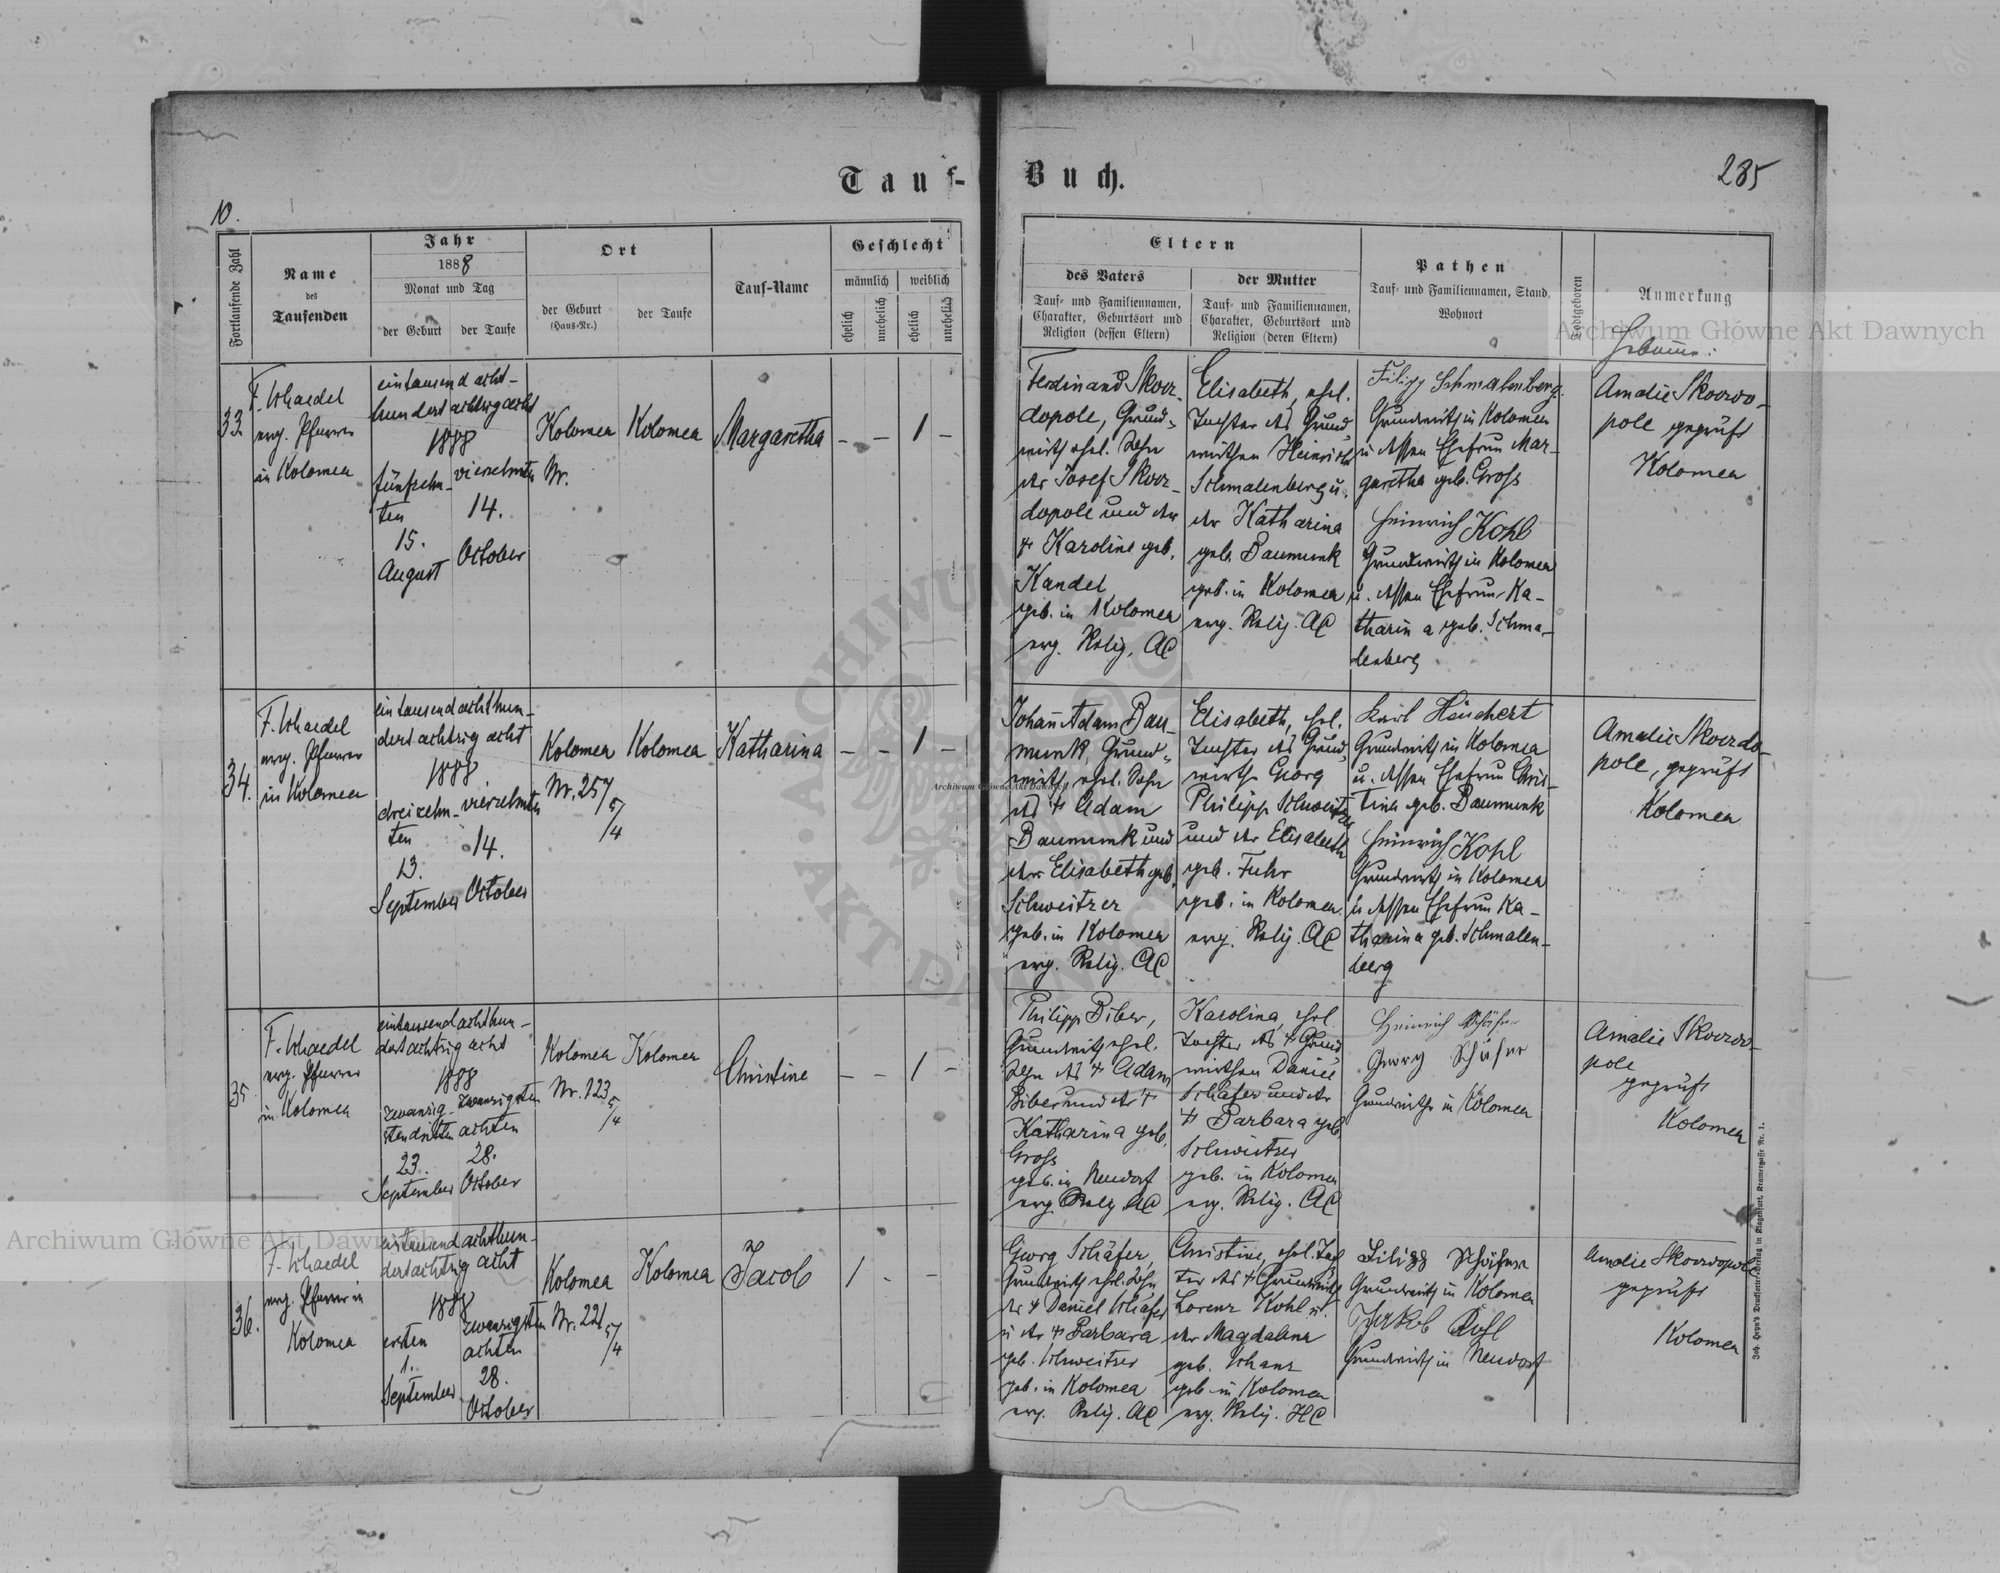 Tauf-Buch.
10.
285
Fortlaufende Zahl
Name
des
Taufenden
Jahr
1888
Monat und Tag
der Geburt
der Taufe
Ort
der Geburt
(Haus-Nr.)
der Taufe
Tauf-Name
Geschlecht
männlich
weiblich
ehelich
unehelich
ehelich
unehelich
Eltern
des Vaters
Tauf- und Familiennamen,
Charakter, Geburtsort und
Religion (dessen Eltern)
der Mutter
Tauf- und Familiennamen,
Charakter, Geburtsort und
Religion (deren Eltern)
Pathen
Tauf- und Familiennamen, Stand,
Wohnort
Todtgeboren
Anmerkung
Hebamme:
33
evg. Pfarrer
in Kolomea
eintausend acht-
hundert achtzig acht
1888
fünfzehn-
ten
15.
August
vierzehnten
14.
October
Kolomea
Nr.
Kolomea
Margaretha
- - 1 -
Ferdinand Skowr-
dopole, Grund-
wirth ehel. Sohn
des Josef Skowr-
dopole und der
† Karoline geb.
Kandel
geb. in Kolomea
evg. Relig. AC
Elisabeth, ehel.
Tochter des Grund-
wirthen Heinrich
Schmalenberg u.
der Katharina
geb. Baumunk
geb. in Kolomea
evg. Relig. AC
Filipp Schmalenberg
Grundwirth in Kolomea
u. dessen Ehefrau Mar-
garetha geb. Gross
Heinrich Kohl
Grundwirth in Kolomea
u. dessen Ehefrau Ka-
tharina geb. Schma-
lenberg
Amalie Skowrdo-
pole geprüft
Kolomea
34.
evg. Pfarrer
in Kolomea
eintausend achthun-
dert achtzig acht
1888
dreizehn-
ten
13.
September
vierzehnten
14.
October
Kolomea
Nr. 257
5/4
Kolomea
Katharina
- - 1 -
Johann Adam Bau-
munk, Grund-
wirth, ehel. Sohn
des † Adam
Baumunk und
der Elisabeth geb.
Schweitzer
geb. in Kolomea
evg. Relig. AC
Elisabeth, ehel.
Tochter des Grund-
wirths Georg
Philipp Schweitzer
und der Elisabeth
geb. Fuhr
geb. in Kolomea
evg. Relig. AC
Karl Häuchert
Grundwirth in Kolomea
u. dessen Ehefrau Chris-
tina geb. Baumunk
Heinrich Kohl
Grundwirth in Kolomea
u. dessen Ehefrau Ka-
tharina geb. Schmalen-
berg
Amalie Skowrdo-
pole, geprüft
Kolomea
35.
evg. Pfarrer
in Kolomea
eintausend achthun-
dert achtzig acht
1888
zwanzig-
sten dritten
23.
September
zwanzigsten
achten
28.
October
Kolomea
Nr. 123
5/4
Kolomea
Christine
- - 1 -
Philipp Biber,
Grundwirth ehel.
Sohn des † Adam
Biber und der †
Katharina geb.
Gross
geb. in Neudorf
evg. Relig. AC
Karolina, ehel.
Tochter des † Grund-
wirthen Daniel
Schäfer und der
† Barbara geb.
Schweitzer
geb. in Kolomea
evg. Relig. AC
Heinrich Schäfer
Georg Schäfer
Grundwirthe in Kolomea
Amalie Skowrdo-
pole
geprüft
Kolomea
36.
evg. Pfarrer in
Kolomea
eintausend achthun-
dert achtzig acht
1888
ersten
1.
September
zwanzigsten
achten
28.
October
Kolomea
Nr. 221
5/4
Kolomea
Jacob
1 - -
Georg Schäfer,
Grundwirth ehel. Sohn
des † Daniel Schäfer
u. der † Barbara
geb. Schweitzer
geb. in Kolomea
evg. Relig. AC
Christine, ehel. Toch-
ter des † Grundwirth
Lorenz Kohl u.
der Magdalena
geb. Schanz
geb. in Kolomea
evg. Relig. HC
Filipp Schäfer
Grundwirth in Kolomea
Jakob Kohl
Grundwirth in Neudorf
Amalie Skowrdopole
geprüft
Kolomea
Archiwum Główne Akt Dawnych
Archiwum Główne Akt Dawnych
Archiwum Główne Akt Dawnych